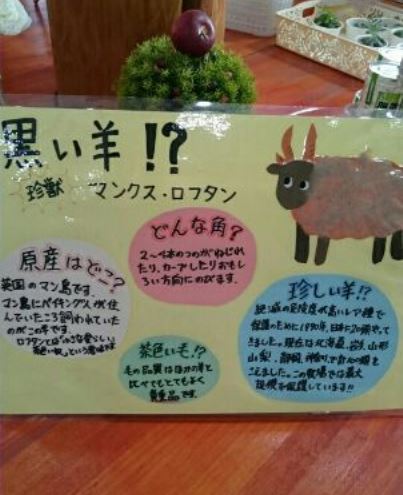 黒い羊!?
珍獣 マンクス・ロフタン
どんな角?
2〜4本のつのがねじれ
たり、カーブしたりおもし
ろい方向にのびます。
原産はどこ?
英国のマン島です。
マン島にバイキングが住
んでいたころ飼われていた
のがこの羊です。
ロフタンとは「小さな愛らしい
茶色いもの」という意味
茶色い毛!?
毛の品質はほかの羊と
比べてもとてもよく
貴重品です。
珍しい羊!?
絶滅の危険度が高いレア種で
保護のために1990年、日本に20頭やって
きました。現在は北海道、岩手、山形
山梨、静岡、神奈川で
こえました。この牧場では最大
規模を保護しています!!